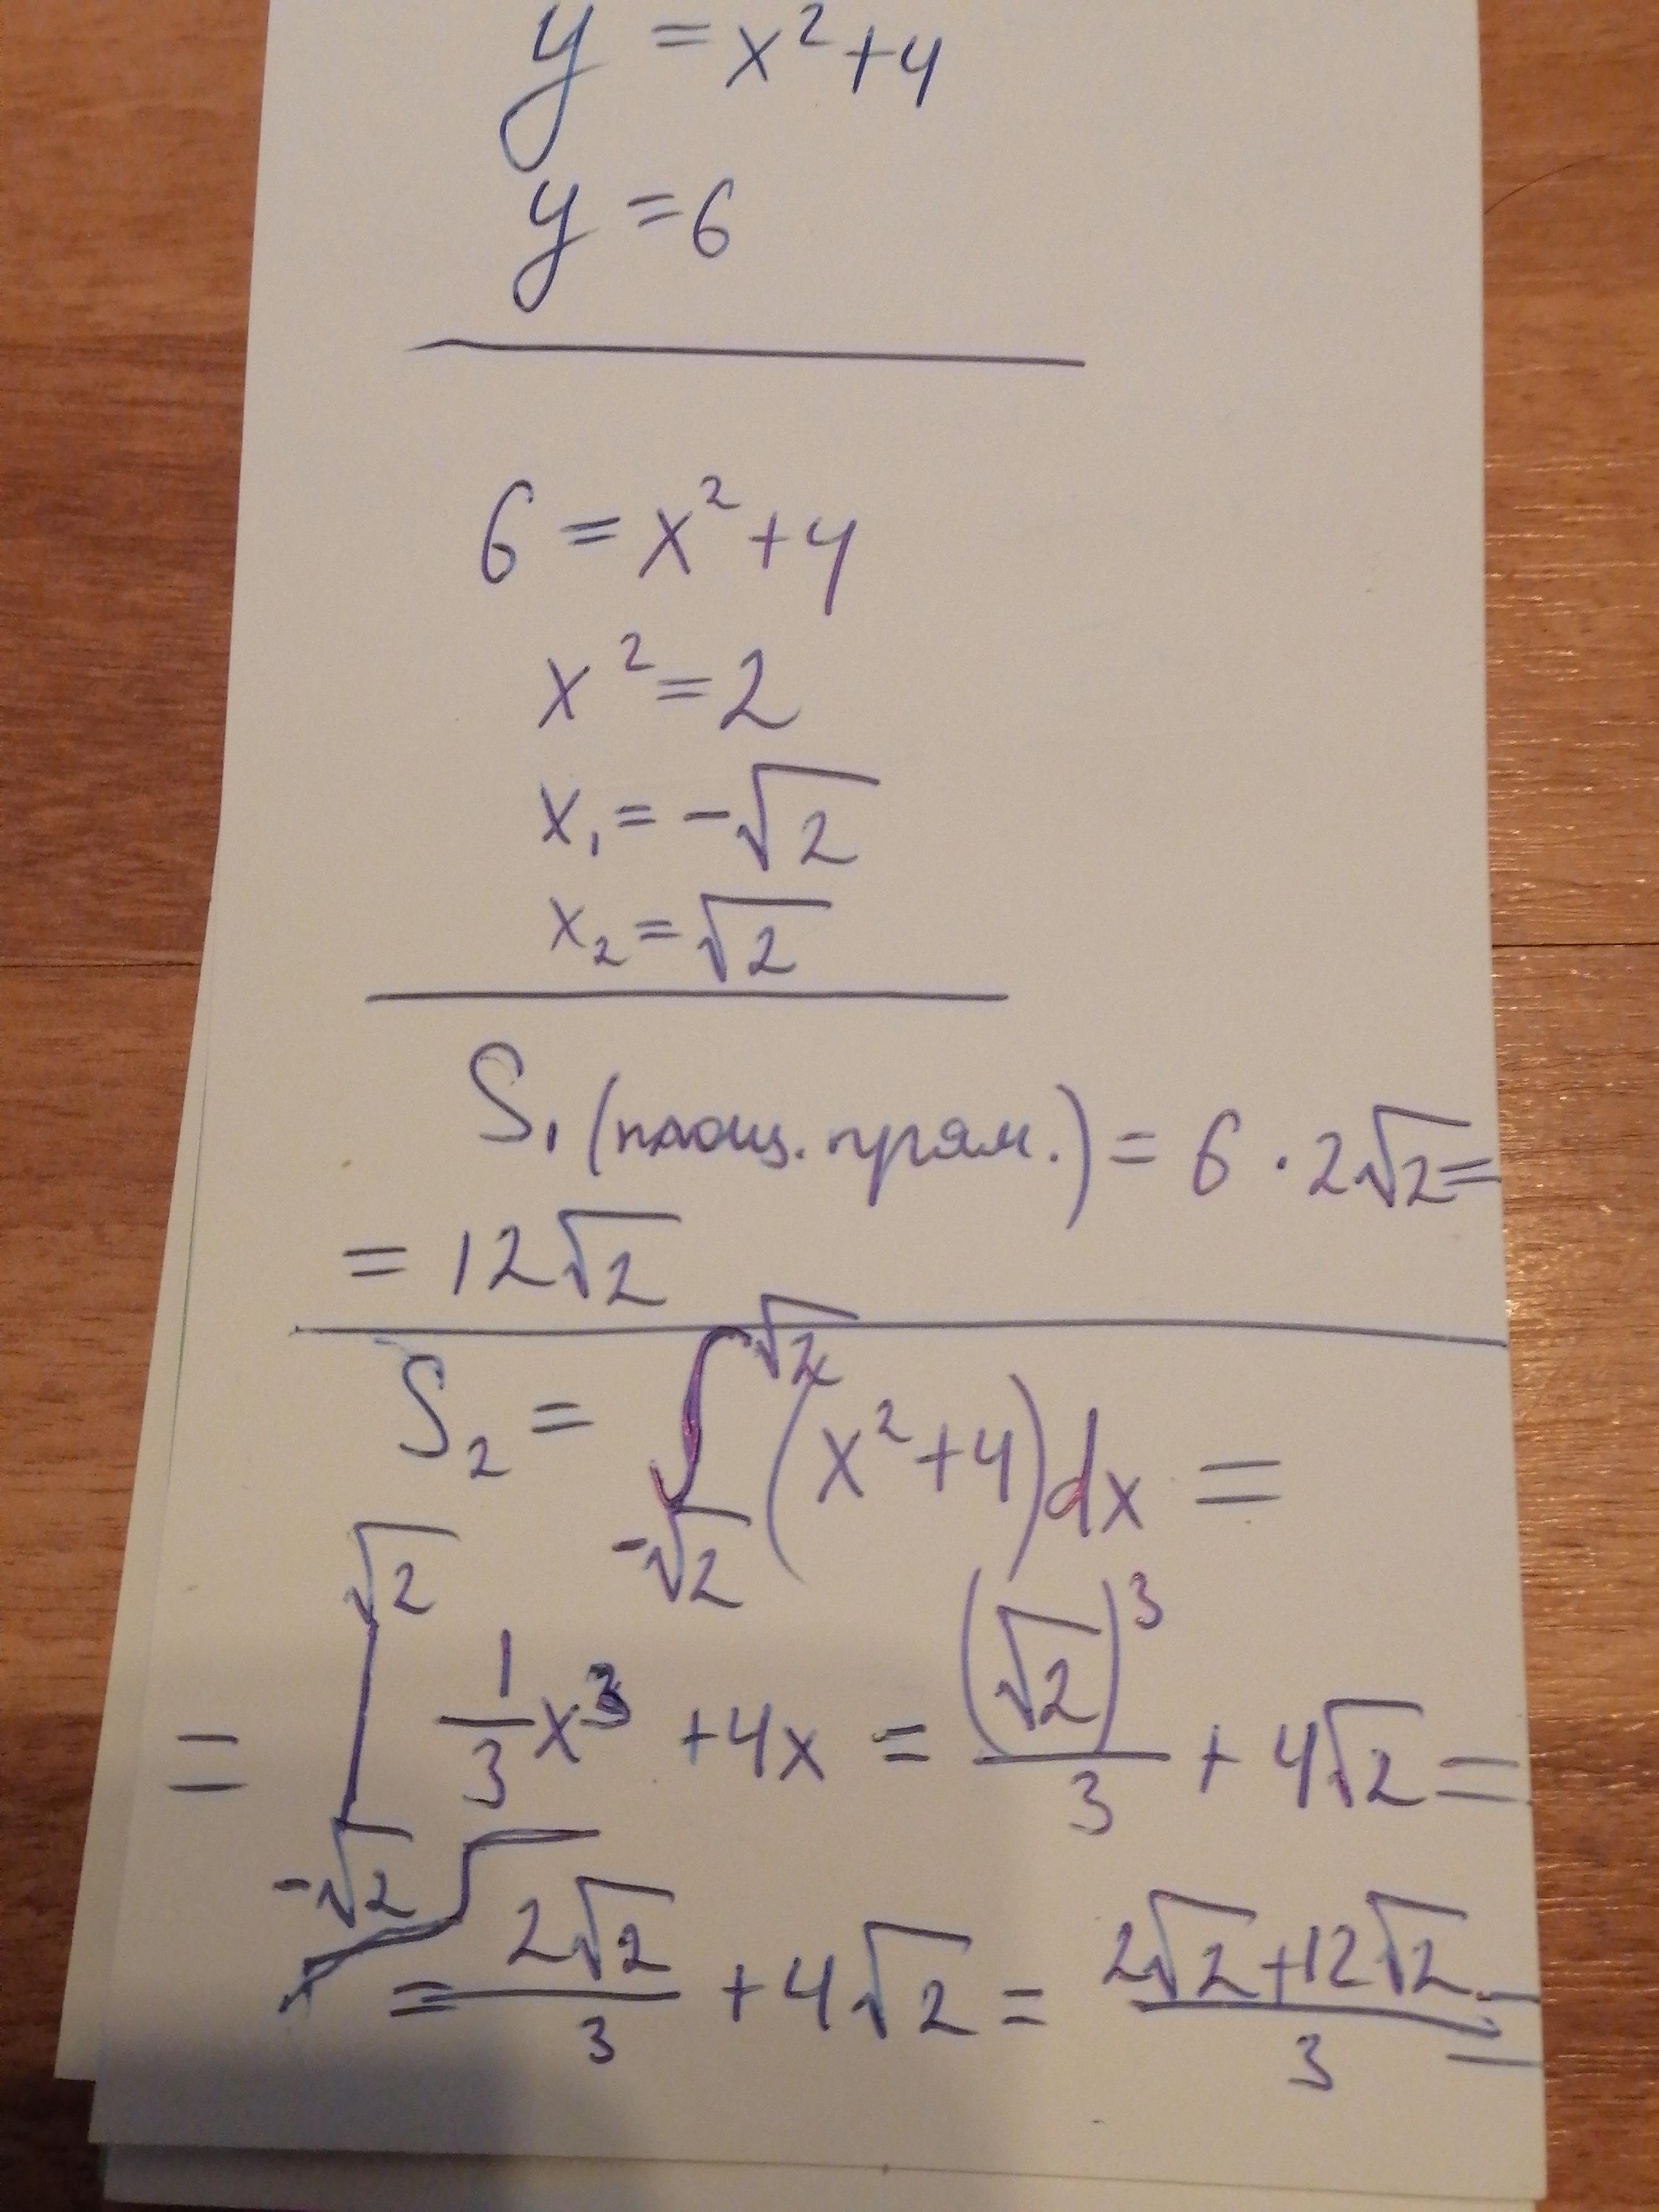 y = x² + 4
y = 6
6 = x² + 4
x² = 2
x₁ = -√2
x₂ = √2
S₁ (площ. прям.) = 6 · 2√2 =
= 12√2
S₂ = ∫_{-√2}^{√2} (x² + 4) dx =
= |_{-√2}^{√2} 1/3 x³ + 4x = (√2)³/3 + 4√2 =
= 2√2/3 + 4√2 = (2√2 + 12√2)/3 =